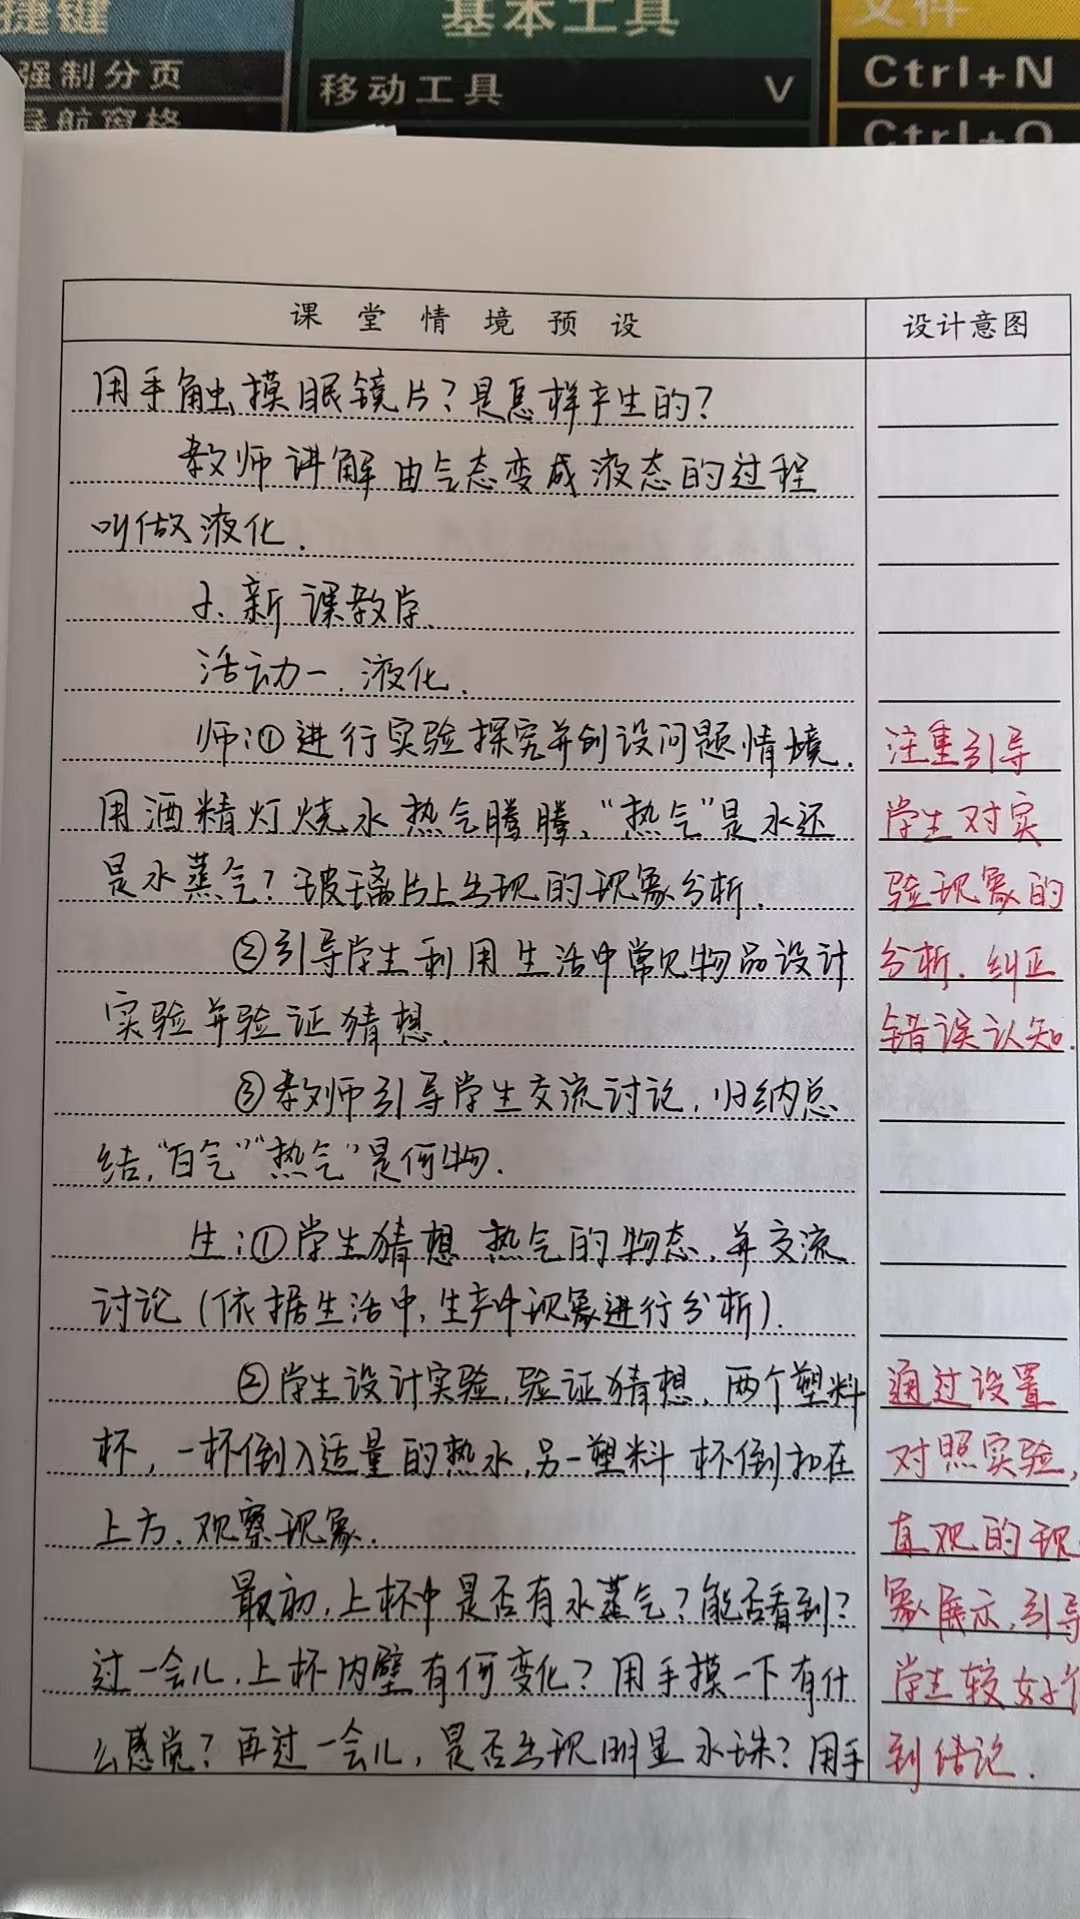 捷键
基本工具
文件
强制分页
移动工具
V
Ctrl+N
导航窗格
Ctrl+O
课堂情境预设
设计意图
用手触摸眼镜片?是怎样产生的?
教师讲解由气态变成液态的过程
叫做液化.
2、新课教学.
活动一.液化.
师:①进行实验探究并创设问题情境.
用酒精灯烧水热气腾腾,“热气”是水还
是水蒸气?玻璃片上出现的现象分析.
②引导学生利用生活中常见物品设计
实验并验证猜想.
③教师引导学生交流讨论,归纳总
结,“白气”“热气”是何物.
生:①学生猜想热气的物态,并交流
讨论(依据生活中,生产中现象进行分析).
②学生设计实验,验证猜想,两个塑料
杯,一杯倒入适量的热水,另一塑料杯倒扣在
上方.观察现象.
最初,上杯中是否有水蒸气?能否看到?
过一会儿,上杯内壁有何变化?用手摸一下有什
么感觉?再过一会儿,是否出现明显水珠?用手
注重引导
学生对实
验现象的
分析.纠正
错误认知.
通过设置
对照实验,
直观的现
象展示,引导
学生较好得
到结论.